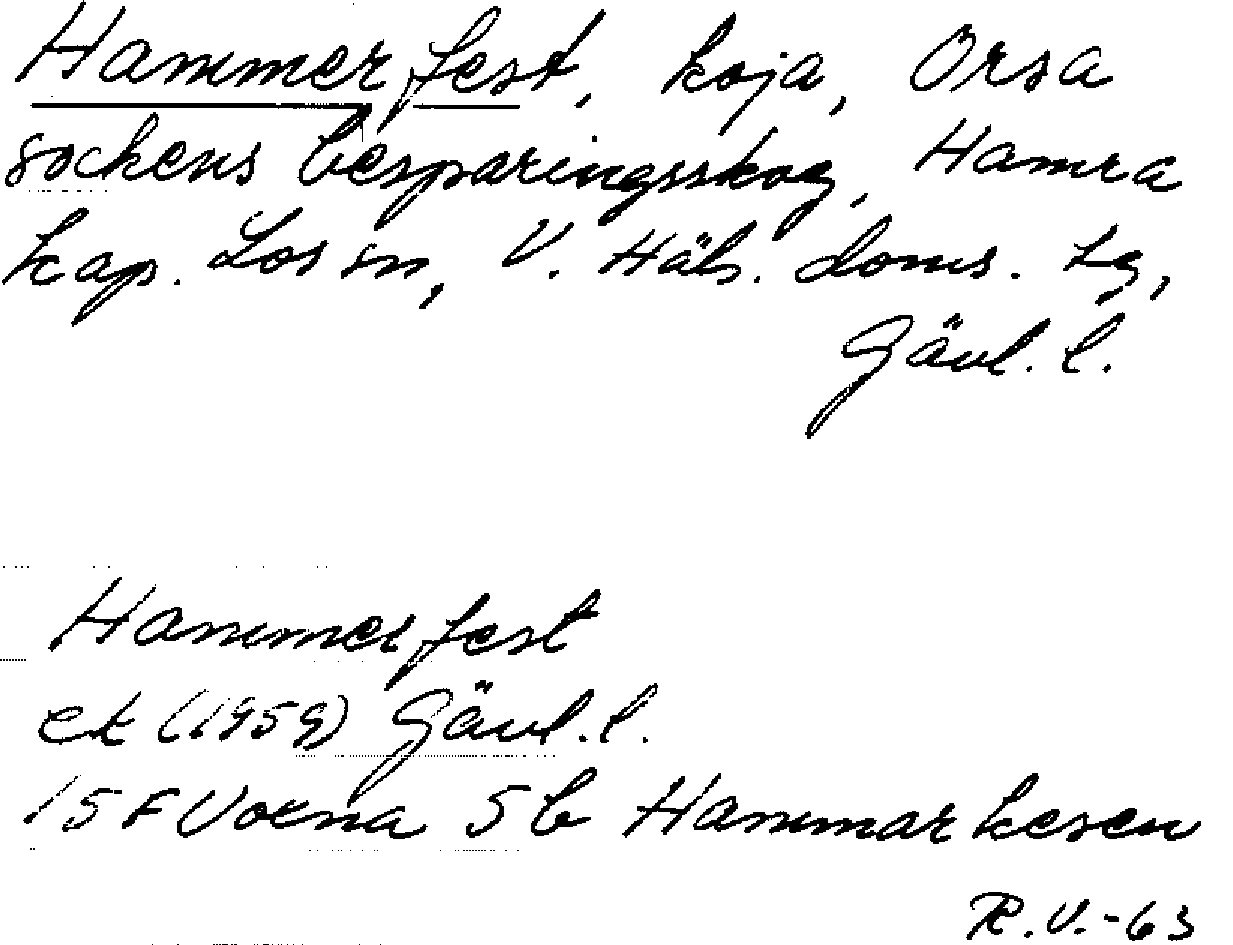 Hammerfest, koja, Orsa
sockens besparingsskog, Hamra
kap. Los sn, V. Häls. doms. tg,
Gävl. l.
Hammerfest
ek (1959) Gävl. l.
15F Voxna 5b Hammarkesen
R.V.-63